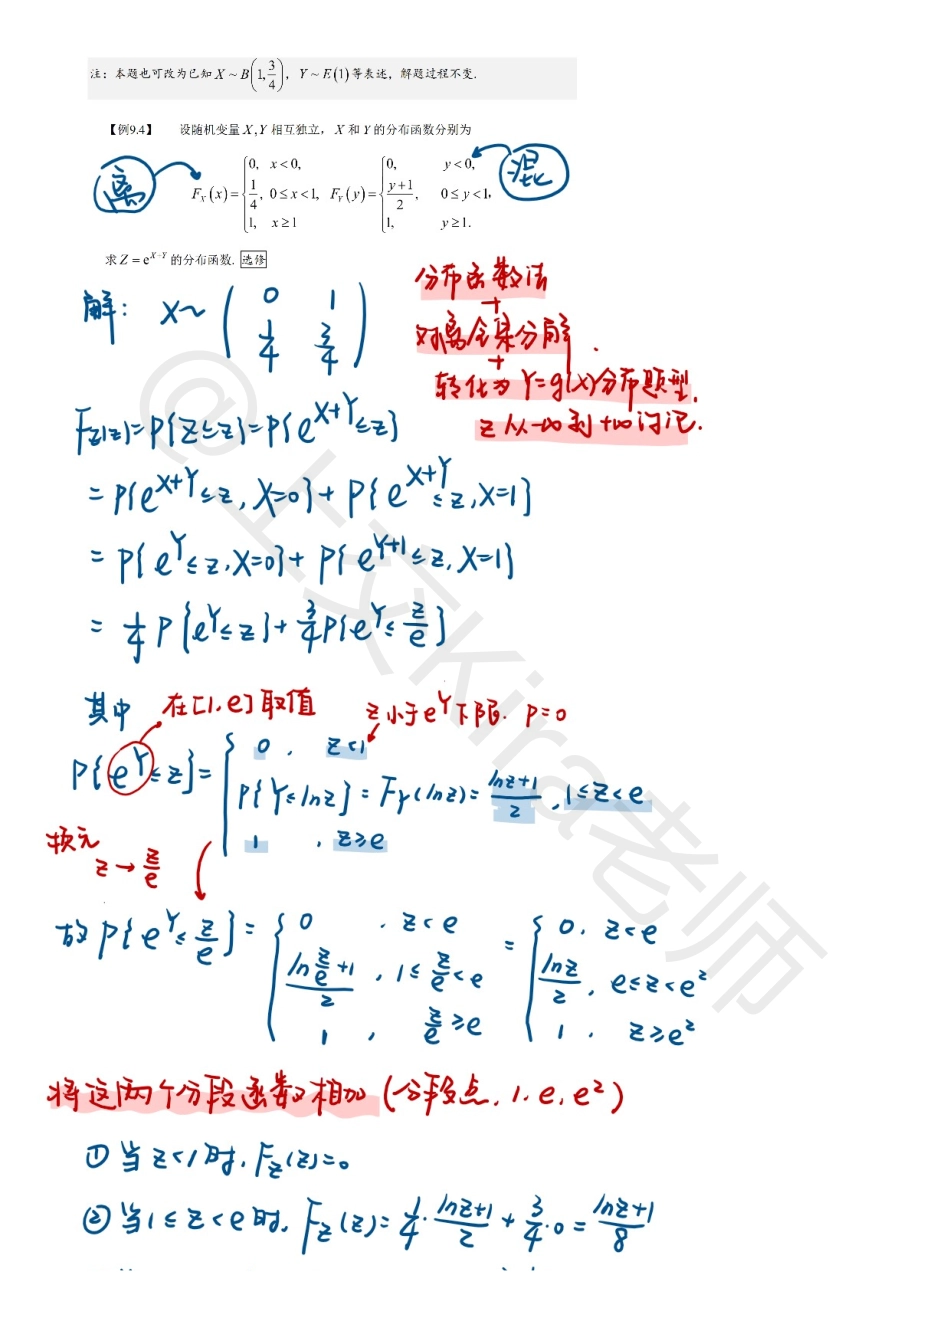 注：本题也可改为已知 X ~ B(1, 3/4)，Y ~ E(1) 等表述，解题过程不变.
【例9.4】 设随机变量 X,Y 相互独立，X 和 Y 的分布函数分别为
离
混
F_X(x) = { 0, x<0, 1/4, 0≤x<1, 1, x≥1 F_Y(y) = { 0, y<0, (y+1)/2, 0≤y<1, 1, y≥1.
求 Z = e^{X-Y} 的分布函数. 选修
分布函数法
+
对离全集分解.
+
转化为 Y=g(X)分布题型.
z 从 -∞ 到 +∞ 讨论.
解: X~ ( 0 1 1/4 3/4 )
F_Z(z)=P{Z≤z}=P{e^{X+Y}≤z}
=P{e^{X+Y}≤z, X=0}+P{e^{X+Y}≤z, X=1}
=P{e^Y≤z, X=0}+P{e^{Y+1}≤z, X=1}
=1/4 P{e^Y≤z}+3/4 P{e^Y≤z/e}
其中 在[1,e]取值 z小于e^Y下限. P=0
P{e^Y≤z}= { 0, z<1 P{Y≤lnz}=F_Y(lnz)=(lnz+1)/2, 1≤z<e 1, z≥e
换元
z→z/e
故P{e^Y≤z/e}= { 0, z<e (ln z/e +1)/2, 1≤z/e<e 1, z/e≥e = { 0, z<e lnz/2, e≤z<e² 1, z≥e²
将这两个分段函数相加 (分段点. 1, e, e²)
① 当z<1时, F_Z(z)=0
② 当1≤z<e时, F_Z(z)=1/4·(lnz+1)/2+3/4·0=(lnz+1)/8
@上交Kira老师